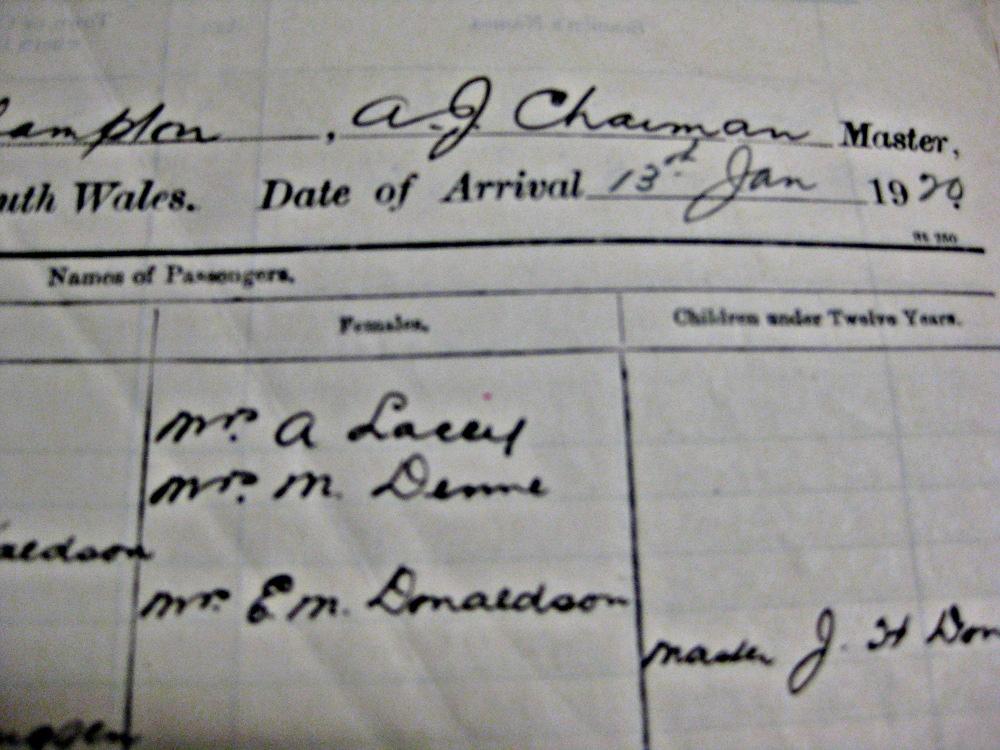 ampton, A. J. Charman Master,
uth Wales. Date of Arrival 13rd Jan 1920
Names of Passengers.
Females. Children under Twelve Years.
Mrs. A Lacey
Mrs. M. Denne
aldson
Mrs. E M. Donaldson
Master J. H Don